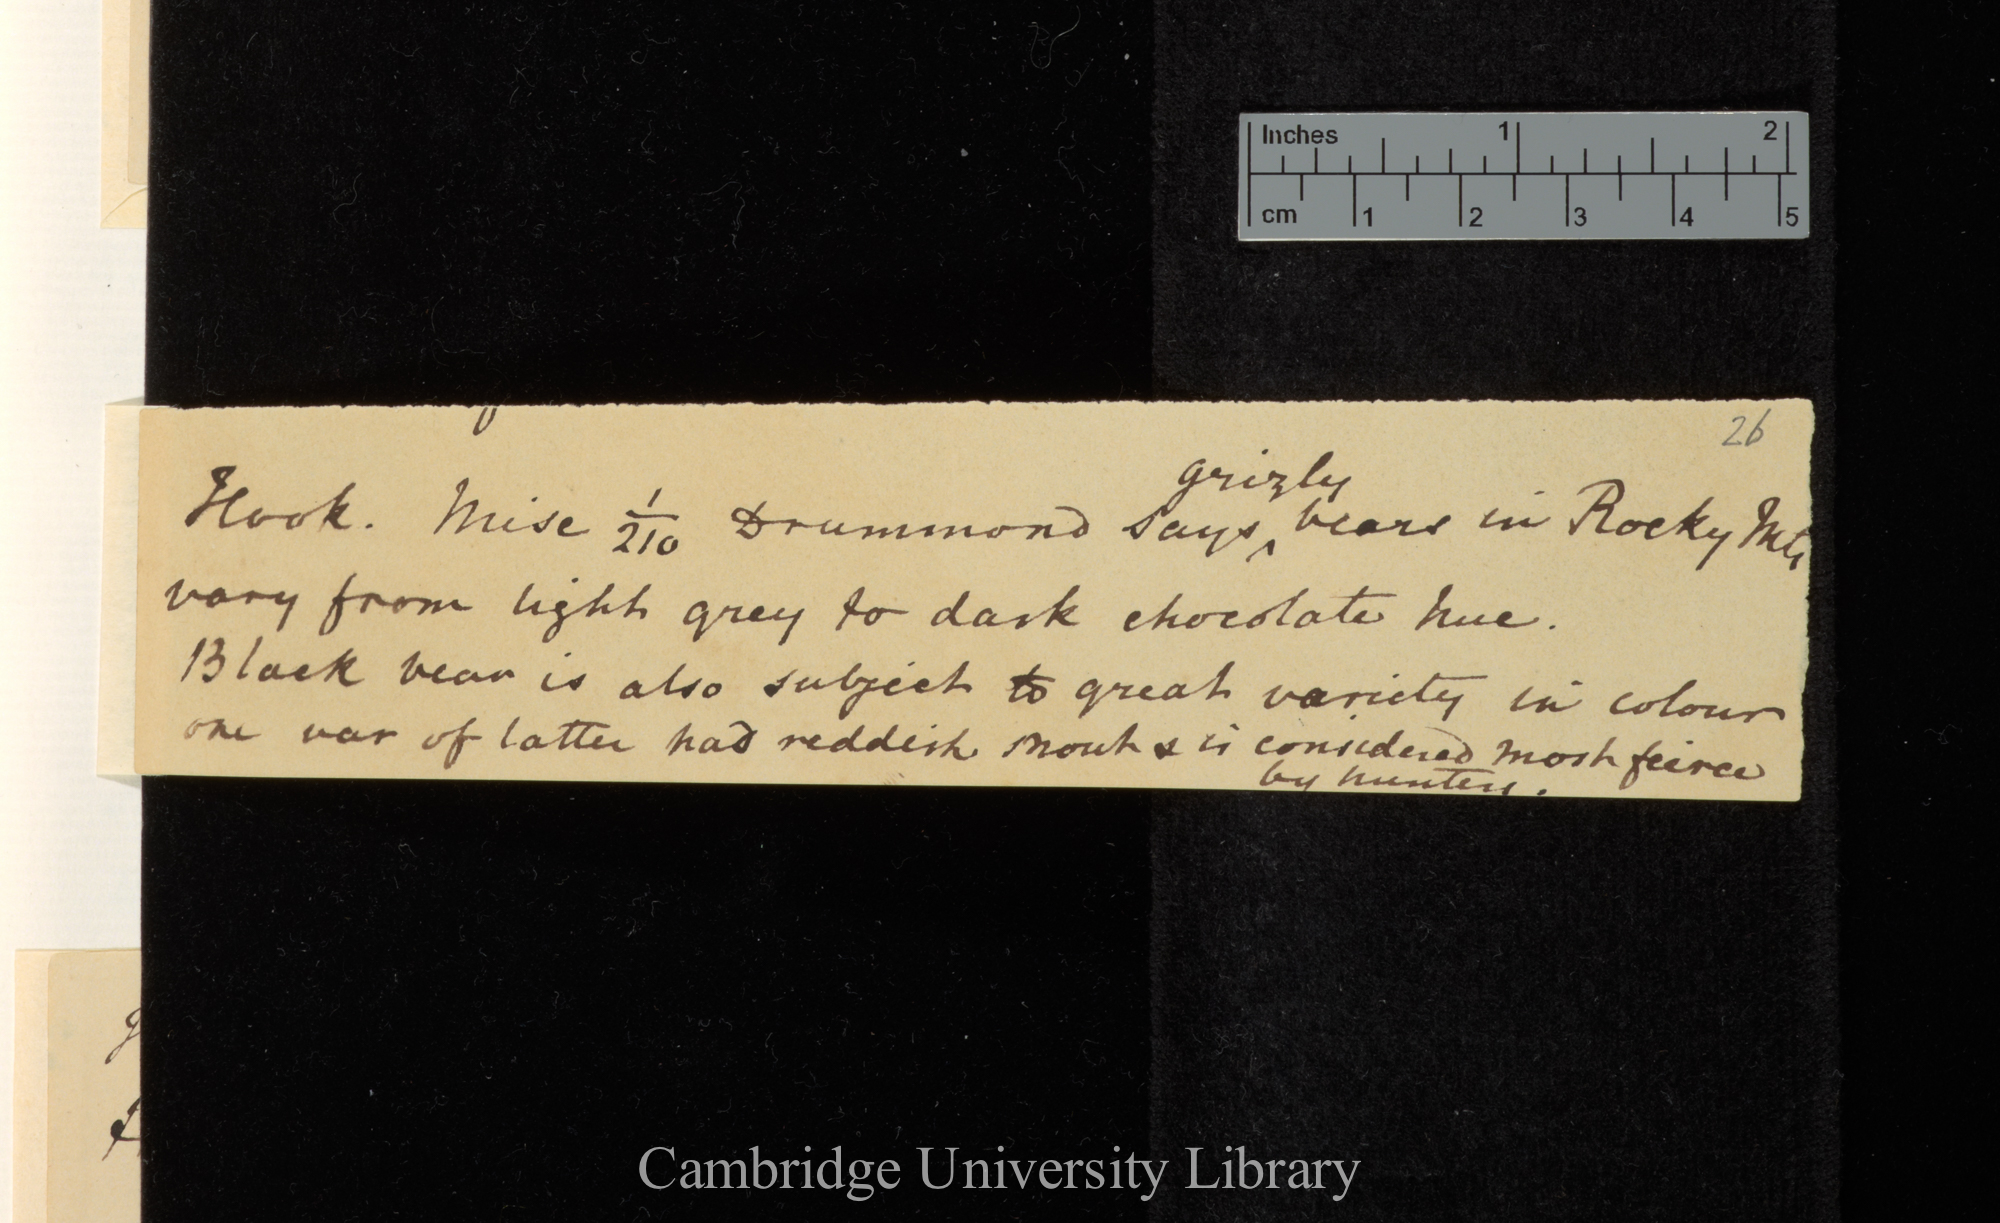 Inches 1 2
cm 1 2 3 4 5
26
Hook. Misc 1/210 Drummond says grizly bears in Rocky Mts
vary from light grey to dark chocolate hue.
Black bear is also subject to great variety in colour
one var of latter had reddish snout & is considered most feirce
by hunters.
Cambridge University Library